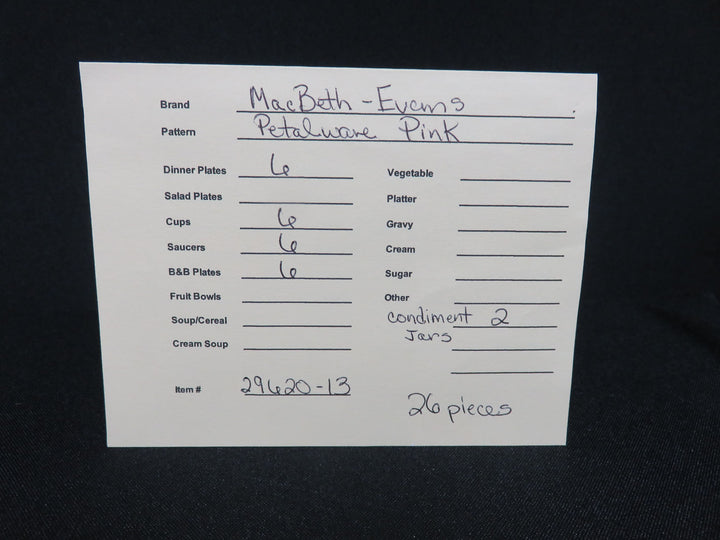 Brand MacBeth-Evans
Pattern Petalware Pink
Dinner Plates 6
Salad Plates
Cups 6
Saucers 6
B&B Plates 6
Fruit Bowls
Soup/Cereal
Cream Soup
Vegetable
Platter
Gravy
Cream
Sugar
Other
condiment 2
Jars
Item # 29620-13
26 pieces